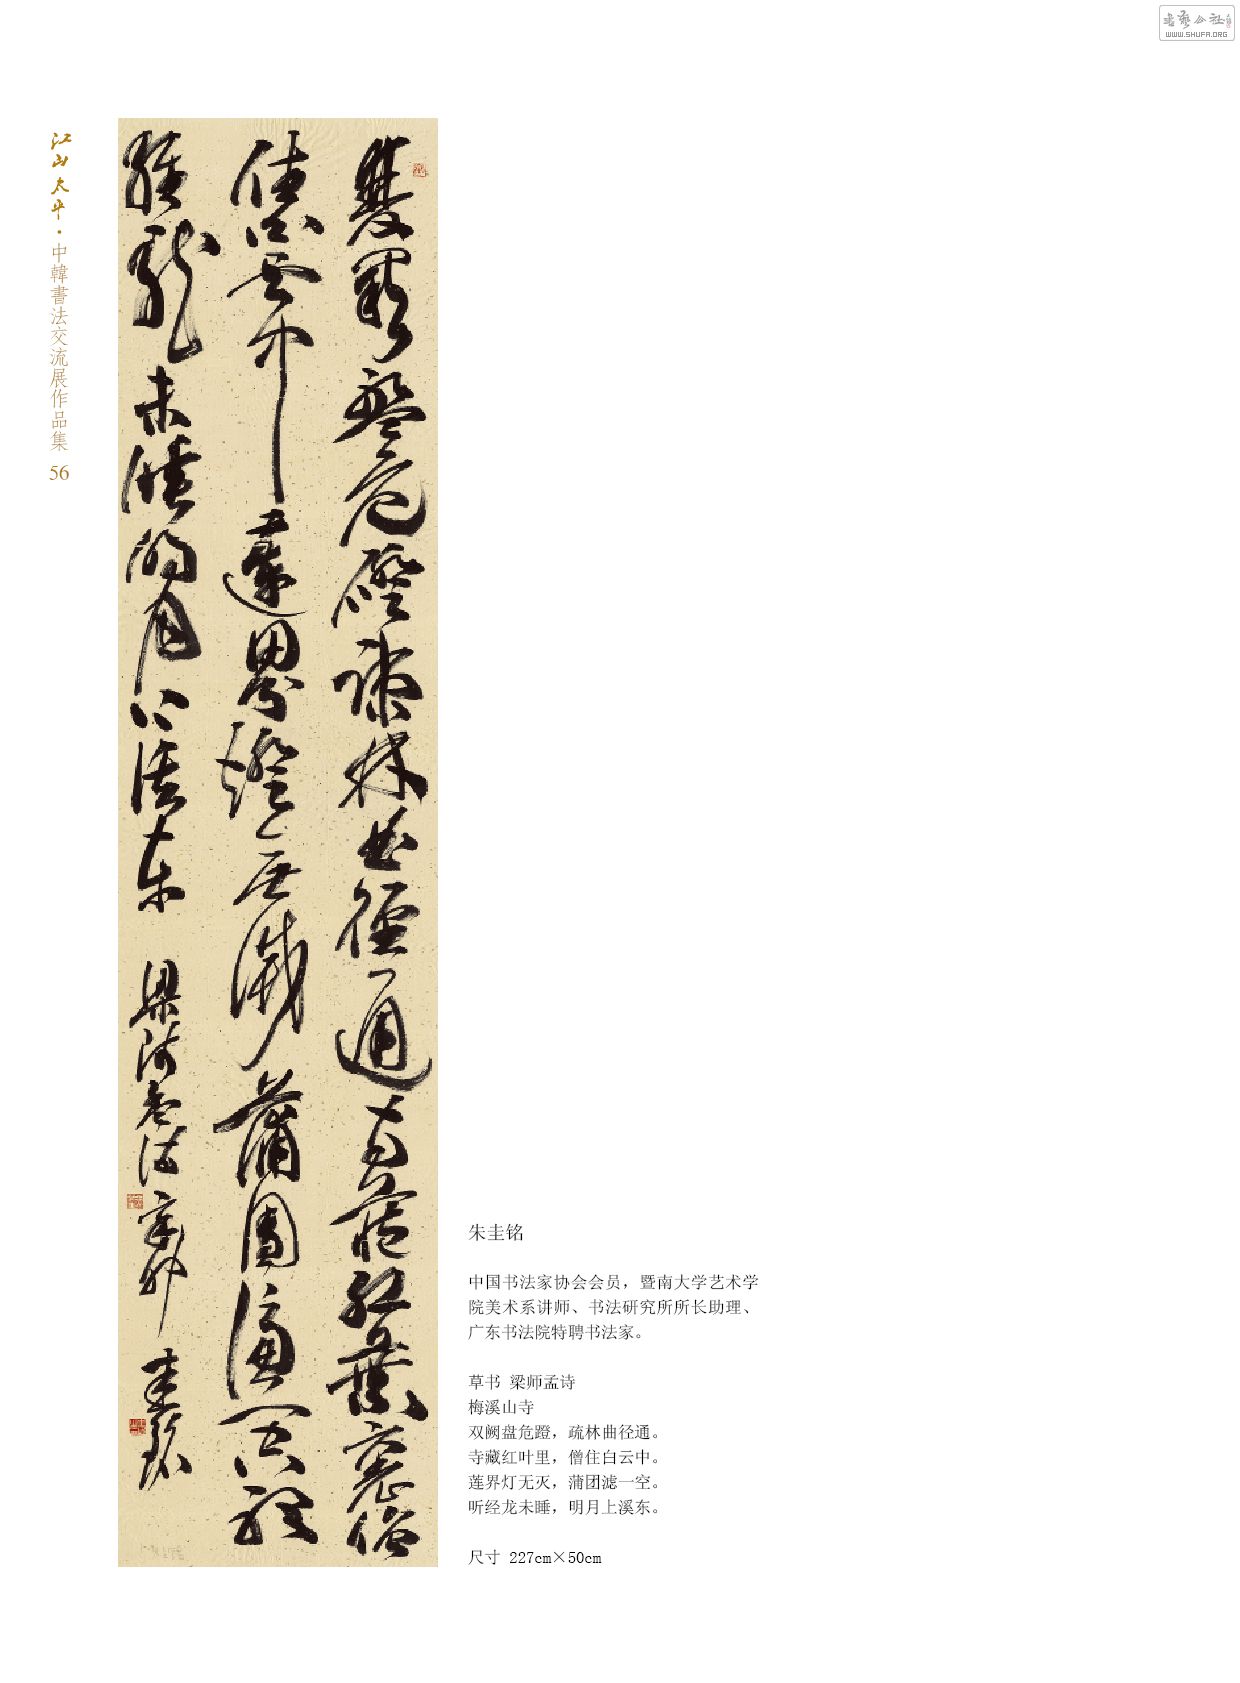 書藝公社
WWW.SHUFA.ORG
江山太平·中韓書法交流展作品集 56
雙闕盤危磴疎林曲徑通寺藏紅葉裏僧
住白雲中蓮界燈無滅蒲團濾一空聽
經龍未睡明月上溪東 梁師孟詩 辛卯 圭銘
朱圭铭
中国书法家协会会员，暨南大学艺术学
院美术系讲师、书法研究所所长助理、
广东书法院特聘书法家。
草书 梁师孟诗
梅溪山寺
双阙盘危蹬，疏林曲径通。
寺藏红叶里，僧住白云中。
莲界灯无灭，蒲团滤一空。
听经龙未睡，明月上溪东。
尺寸 227cm×50cm